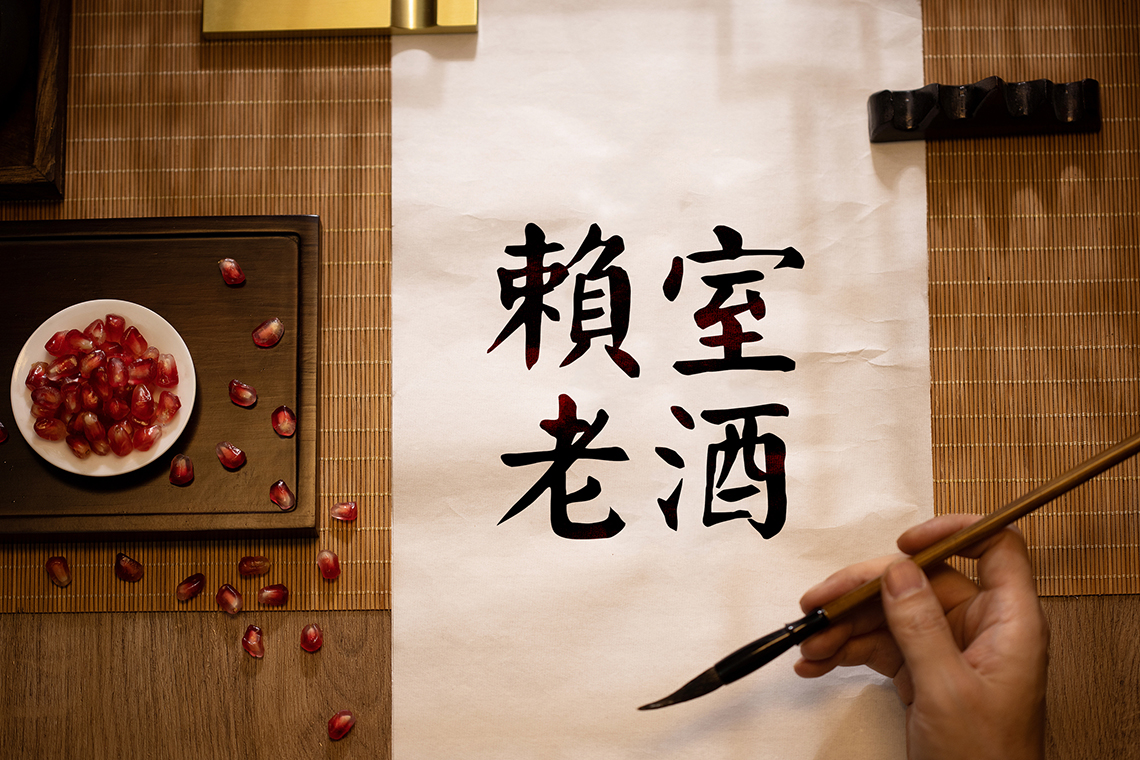 賴室
老酒